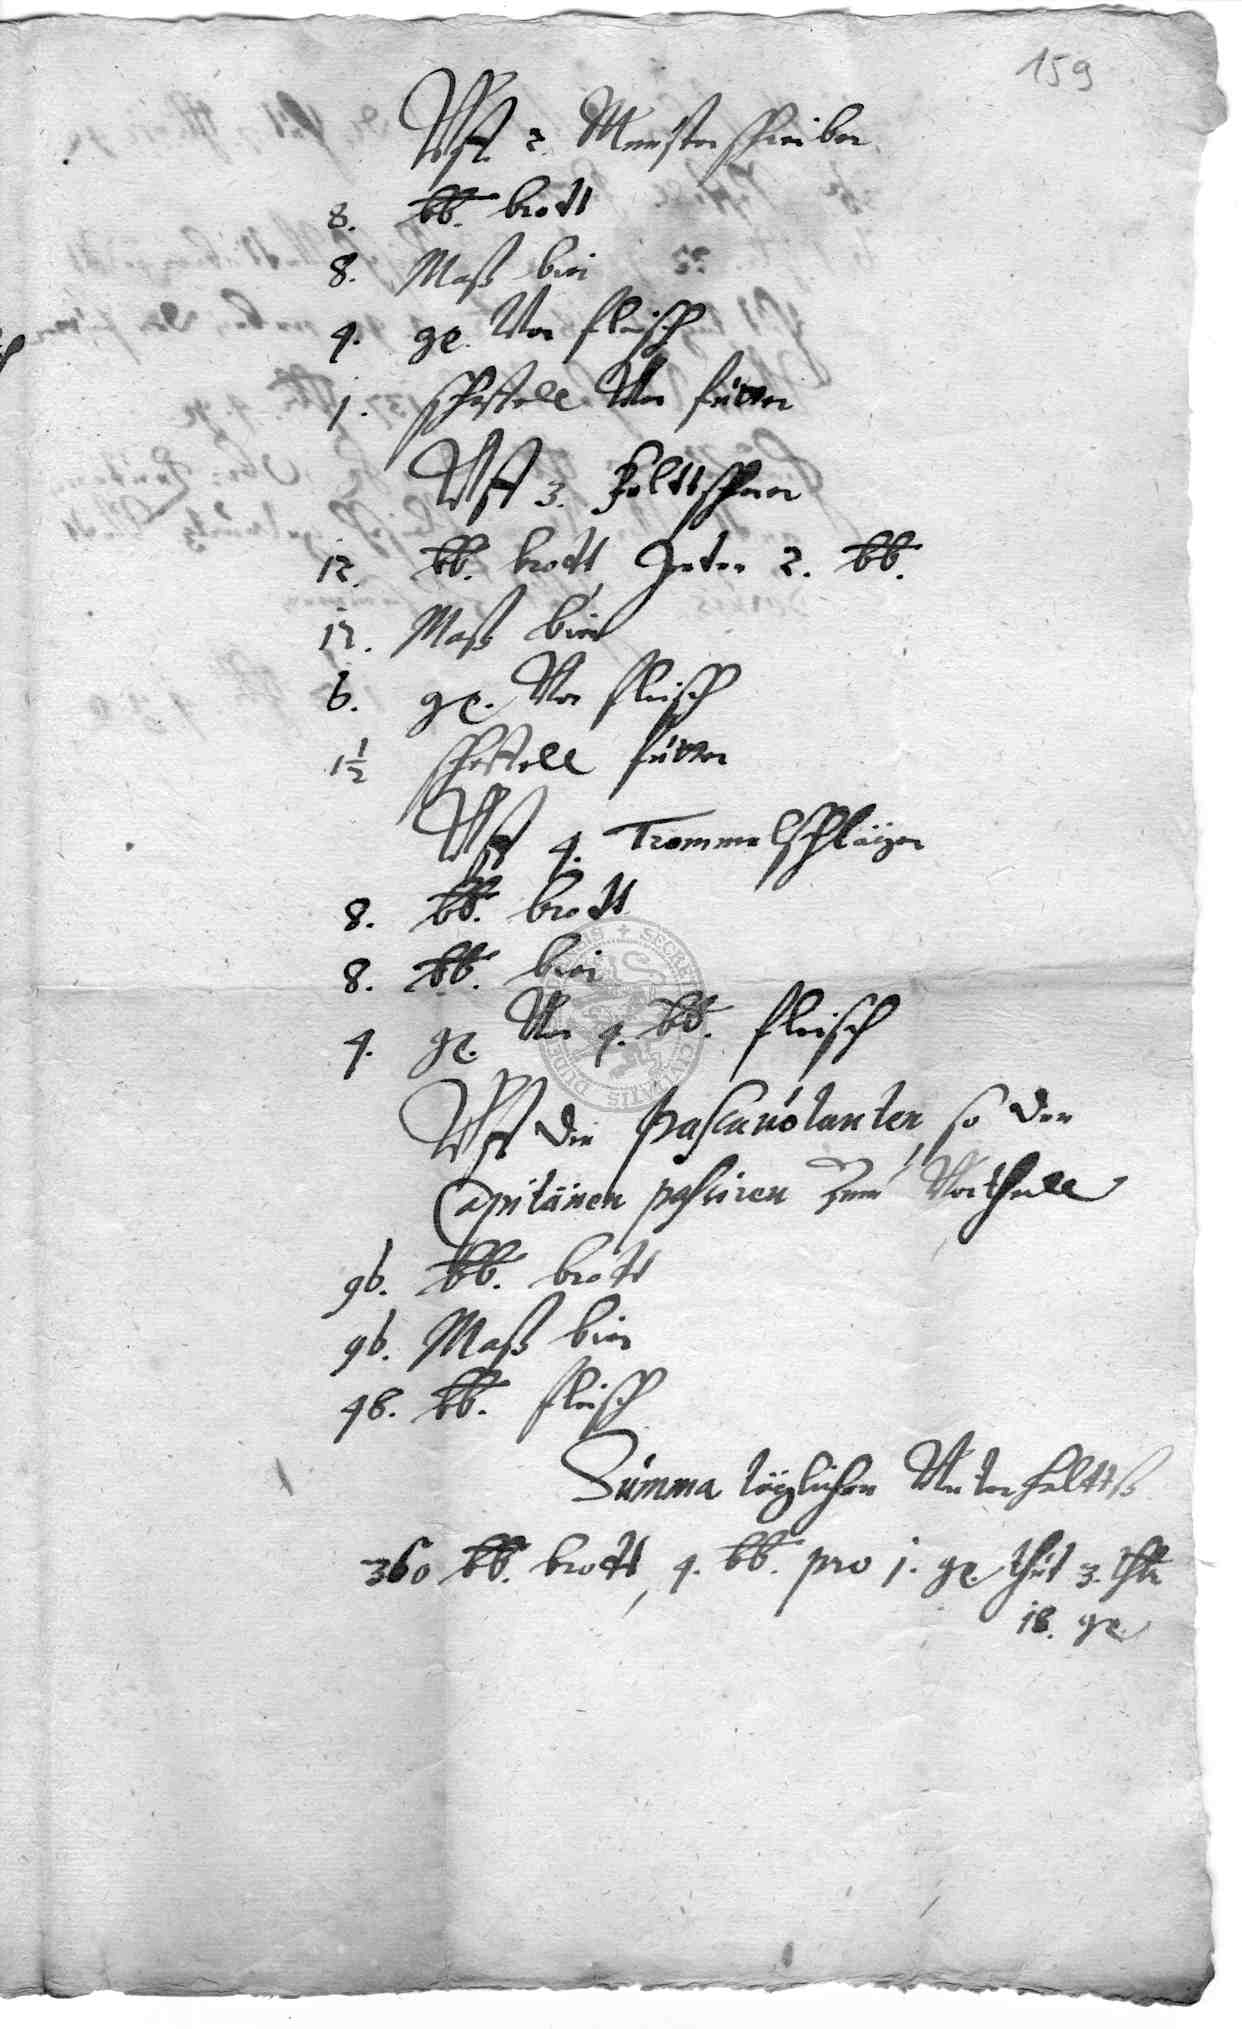 159
Uff 2. Munsterschreiber
8. lb. brott
8. Maß bier
4. gr. Vor fleisch
1. scheffell Vor futter
Uff 3. Feltscherer
12. lb. brott, Jeder 2. lb.
12. Maß bier
6. gr. Vor fleisch
1 1/2 scheffell futter
Uff 4. Trommelschläger
8. lb. brott
8. lb. bier
4. gr. Vor 4. lb. fleisch
Uff die passauolanten, so den
Capitänen passiren zum Vortheill
96. lb. brott
96. Maß bier
48. lb. fleisch
Summa täglichen Unterhaltts
360 lb. brott, 4. lb. pro 1. gr. thut 3. thlr
18. gr.